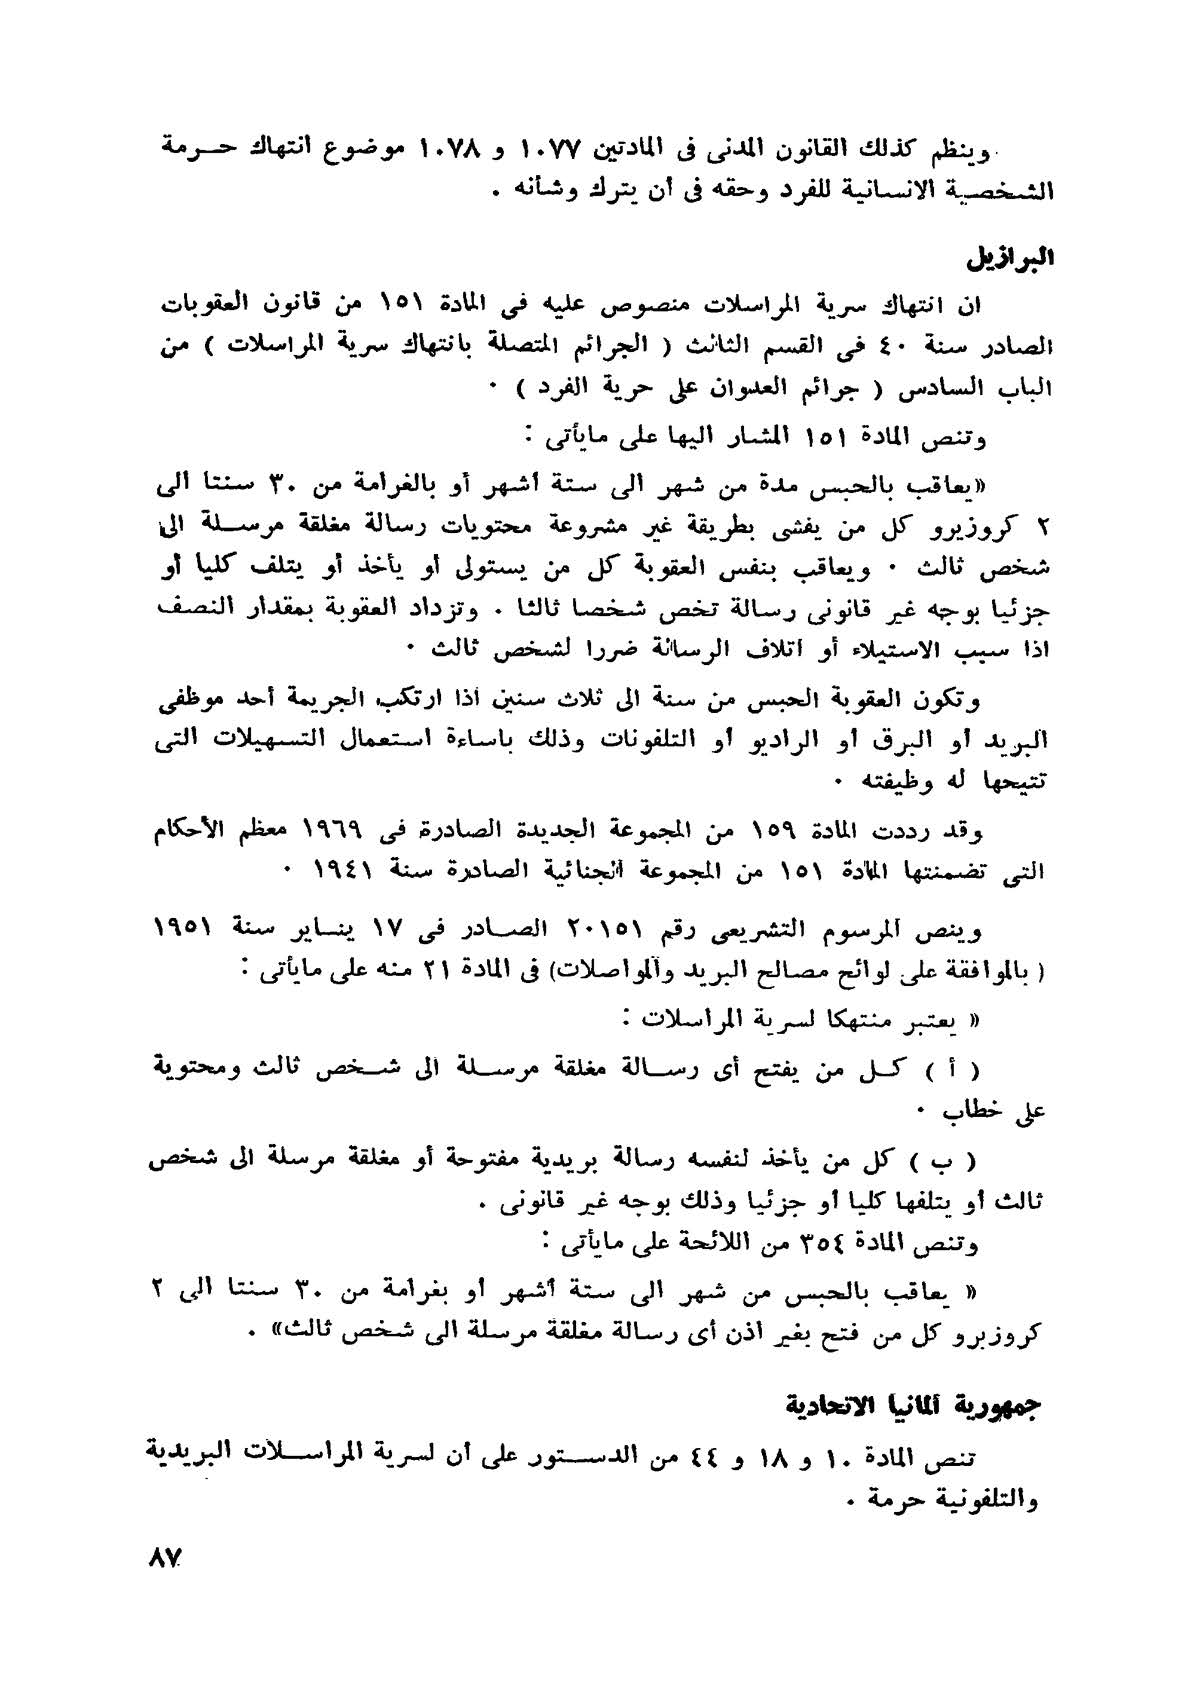 وينظم كذلك القانون المدنى فى المادتين ١٠٧٧ و ١٠٧٨ موضوع انتهاك حـرمة
الشخصية الانسانية للفرد وحقه فى أن يترك وشأنه .
البرازيل
ان انتهاك سرية المراسلات منصوص عليه فى المادة ١٥١ من قانون العقوبات
الصادر سنة ٤٠ فى القسم الثالث ( الجرائم المتصلة بانتهاك سرية المراسلات ) من
الباب السادس ( جرائم العدوان على حرية الفرد ) ٠
وتنص المادة ١٥١ المشار اليها على مايأتى :
«يعاقب بالحبس مدة من شهر الى ستة أشهر أو بالغرامة من ٣٠ سنتا الى
٢ كروزيرو كل من يفشى بطريقة غير مشروعة محتويات رسالة مغلقة مرسـلة الى
شخص ثالث ٠ ويعاقب بنفس العقوبة كل من يستولى أو يأخذ أو يتلف كليا أو
جزئيا بوجه غير قانونى رسالة تخص شخصا ثالثا . وتزداد العقوبة بمقدار النصف
اذا سبب الاستيلاء أو اتلاف الرسالة ضررا لشخص ثالث ٠
وتكون العقوبة الحبس من سنة الى ثلاث سنين اذا ارتكب الجريمة أحد موظفى
البريد أو البرق أو الراديو أو التلفونات وذلك باساءة استعمال التسهيلات التى
تتيحها له وظيفته ٠
وقد رددت المادة ١٥٩ من المجموعة الجديدة الصادرة فى ١٩٦٩ معظم الأحكام
التى تضمنتها المادة ١٥١ من المجموعة الجنائية الصادرة سنة ١٩٤١ ٠
وينص المرسوم التشريعى رقم ٢٠١٥١ الصـادر فى ١٧ ينـاير سنة ١٩٥١
( بالموافقة على لوائح مصالح البريد والمواصلات) فى المادة ٢١ منه على مايأتى :
« يعتبر منتهكا لسرية المراسلات :
( أ ) كـل من يفتح أى رسـالة مغلقة مرسـلة الى شـخص ثالث ومحتوية
على خطاب ٠
( ب ) كل من يأخذ لنفسه رسالة بريدية مفتوحة أو مغلقة مرسلة الى شخص
ثالث أو يتلفها كليا أو جزئيا وذلك بوجه غير قانونى .
وتنص المادة ٣٥٤ من اللائحة على مايأتى :
« يعاقب بالحبس من شهر الى ستة أشهر أو بغرامة من ٣٠ سنتا الى ٢
كروزيرو كل من فتح بغير اذن أى رسالة مغلقة مرسلة الى شخص ثالث» .
جمهورية ألمانيا الاتحادية
تنص المادة ١٠ و ١٨ و ٤٤ من الدسـتور على أن لسرية المراسـلات البريدية
والتلفونية حرمة .
٨٧